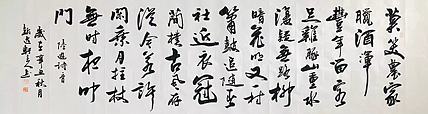 莫笑農家
臘酒渾
豐年留客
足雞豚山重水
複疑無路柳
暗花明又一村
簫鼓追隨春
社近衣冠
簡樸古風存
從今若許
閑乘月拄杖
無時夜叩
門
陸遊詩書